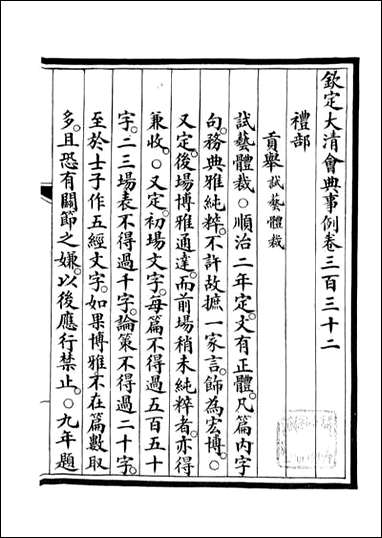 欽定大清會典事例卷三百三十二
禮部
貢舉試藝體裁
試藝體裁○順治二年定。文有正體。凡篇內字
句。務典雅純粹。不許故摭一家言。飾為宏博。○
又定。後場博雅通達。而前場稍未純粹者。亦得
兼收。○又定。初場文字。每篇不得過五百五十
字。二三場表不得過千字。論策不得過二千字。
至於士子作五經文字。如果博雅。不在篇數取
多。且恐有關節之嫌。以後應行禁止。○九年題